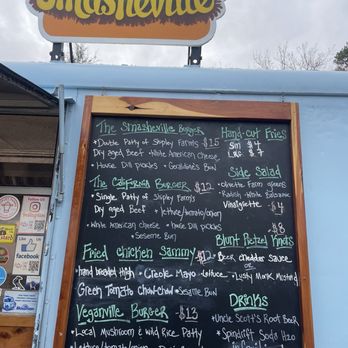 Smasheville
The Smasheville Burger
• Double Patty of Shipley Farms $15
Dry aged Beef • White American cheese
• House Dill pickles • Geraldine's Bun
The California Burger $12
• Single Patty of Shipley Farms
Dry aged Beef • lettuce/tomato/onion
White American cheese • house Dill pickles
• Sesame Bun
Fried chicken Sammy
• hand breaded thigh • Creole Mayo • Lettuce
Green Tomato Chow-Chow • Sesame Bun
Veganville Burger - $13
• Local Mushroom & Wild Rice Patty
Lettuce/tomato/onion
Hand-Cut Fries
Sm $4
Lrg $7
Side Salad
Farm greens
Radish White Balsamic
Vinaigrette - $4
Blunt Pretzel Knots
Beer cheddar sauce or $8
• Lusty Monk Mustard
Drinks
• Uncle Scott's Root Beer
• Spindrift Soda H2O
facebook